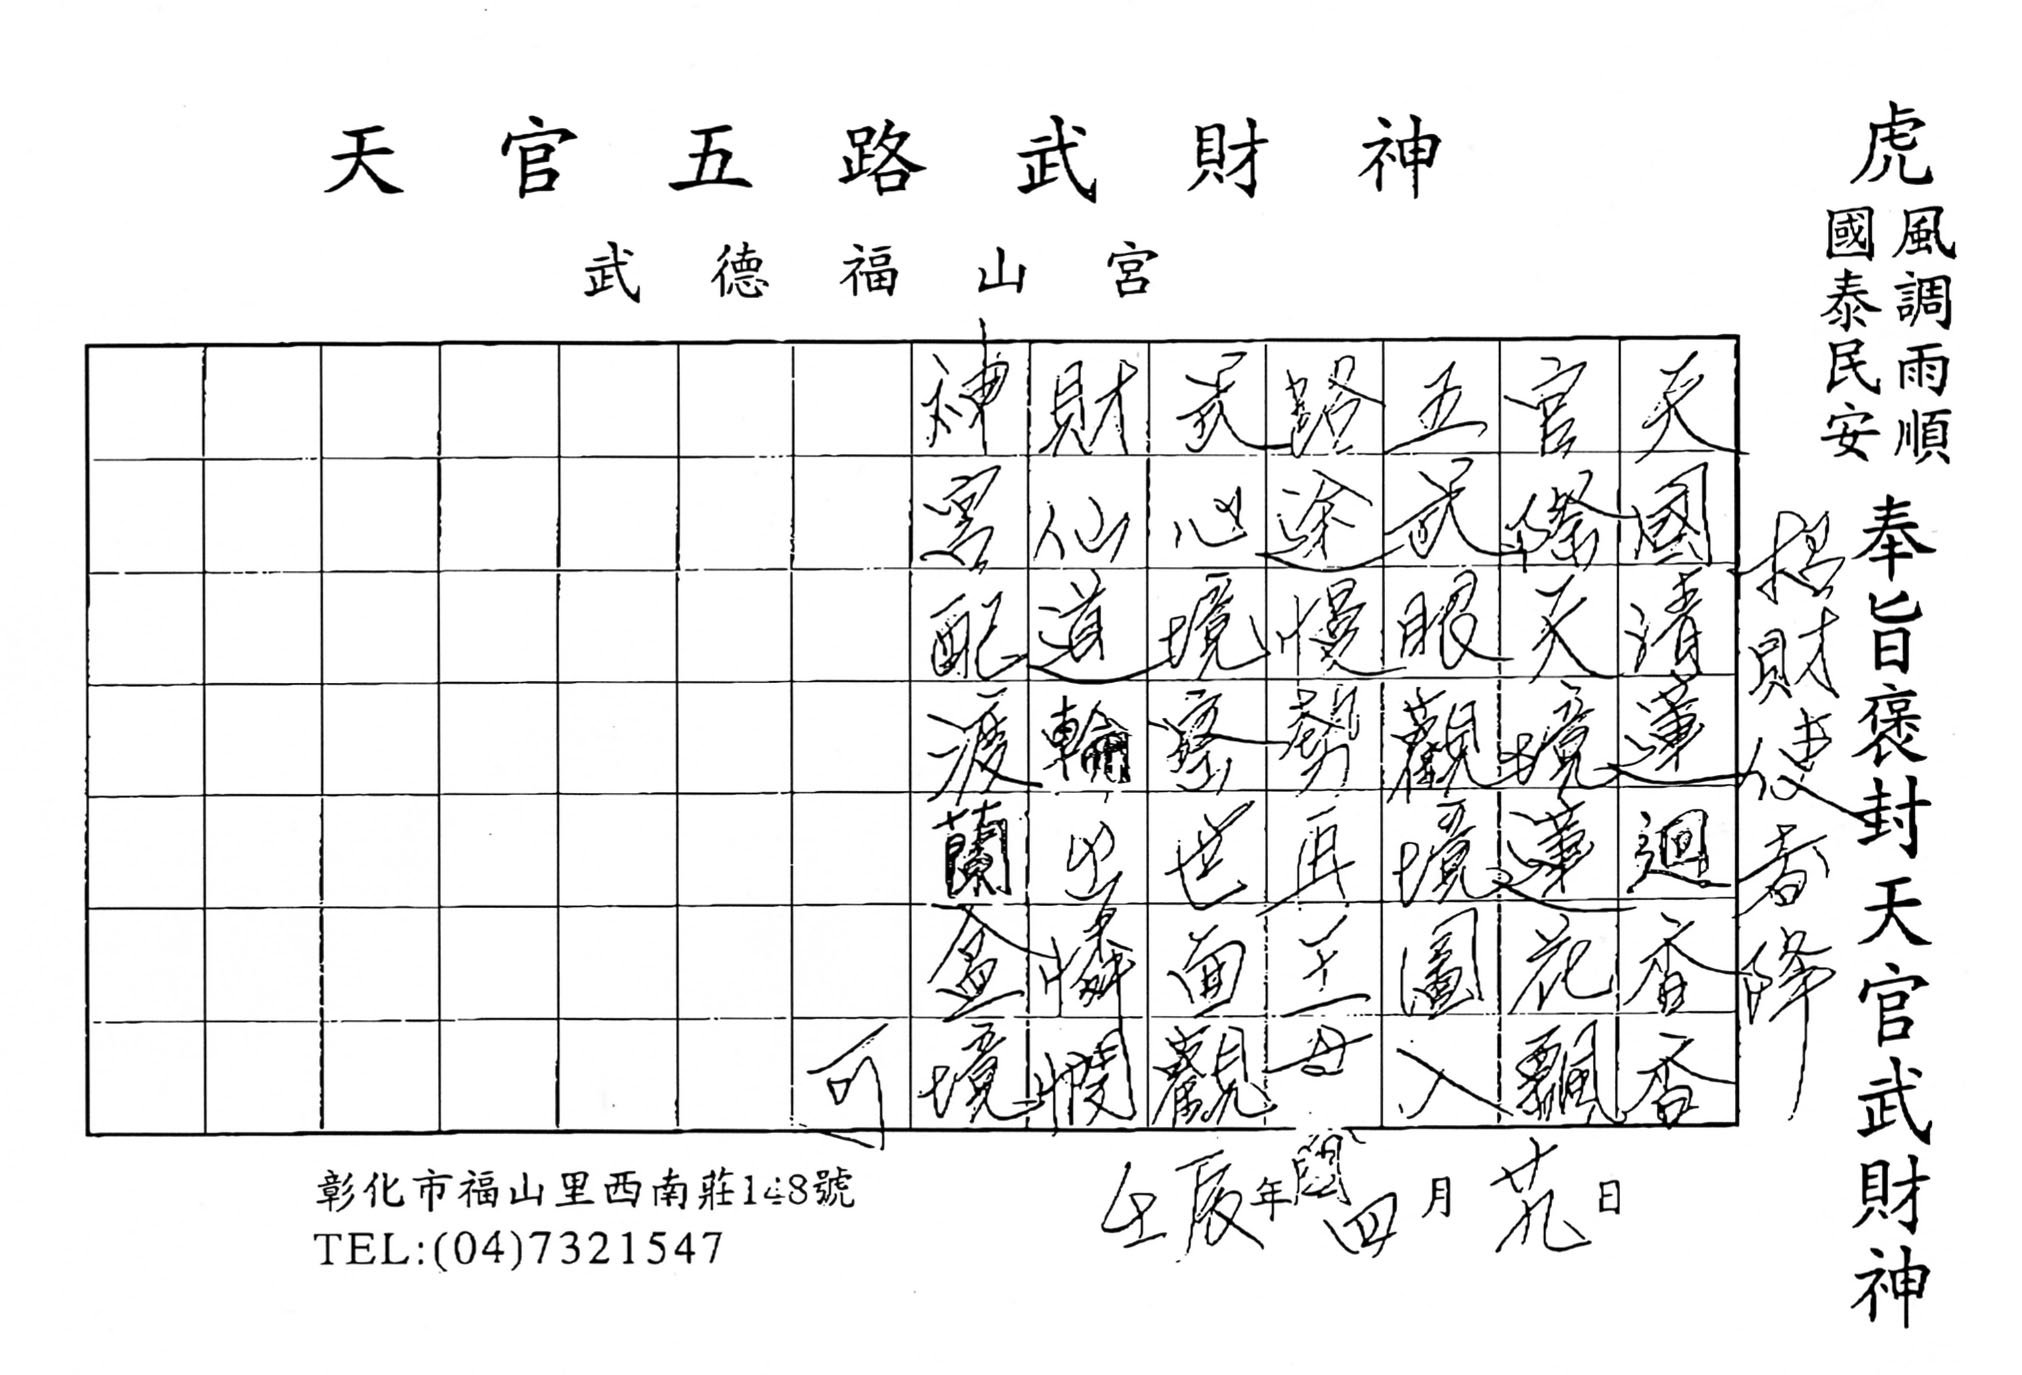 天官五路武財神
武德福山宮
虎
風調雨順
國泰民安
奉旨褒封天官武財神
招財使者降
天國清蓮迴香香
官際天境蓮花飄
五武眼觀境圖入
路途慢再王母
武心境世面觀
財仙道輪也憐憫
神宮配渡蘭盆境
可
壬辰年閏四月廿九日
彰化市福山里西南莊148號
TEL:(04)7321547